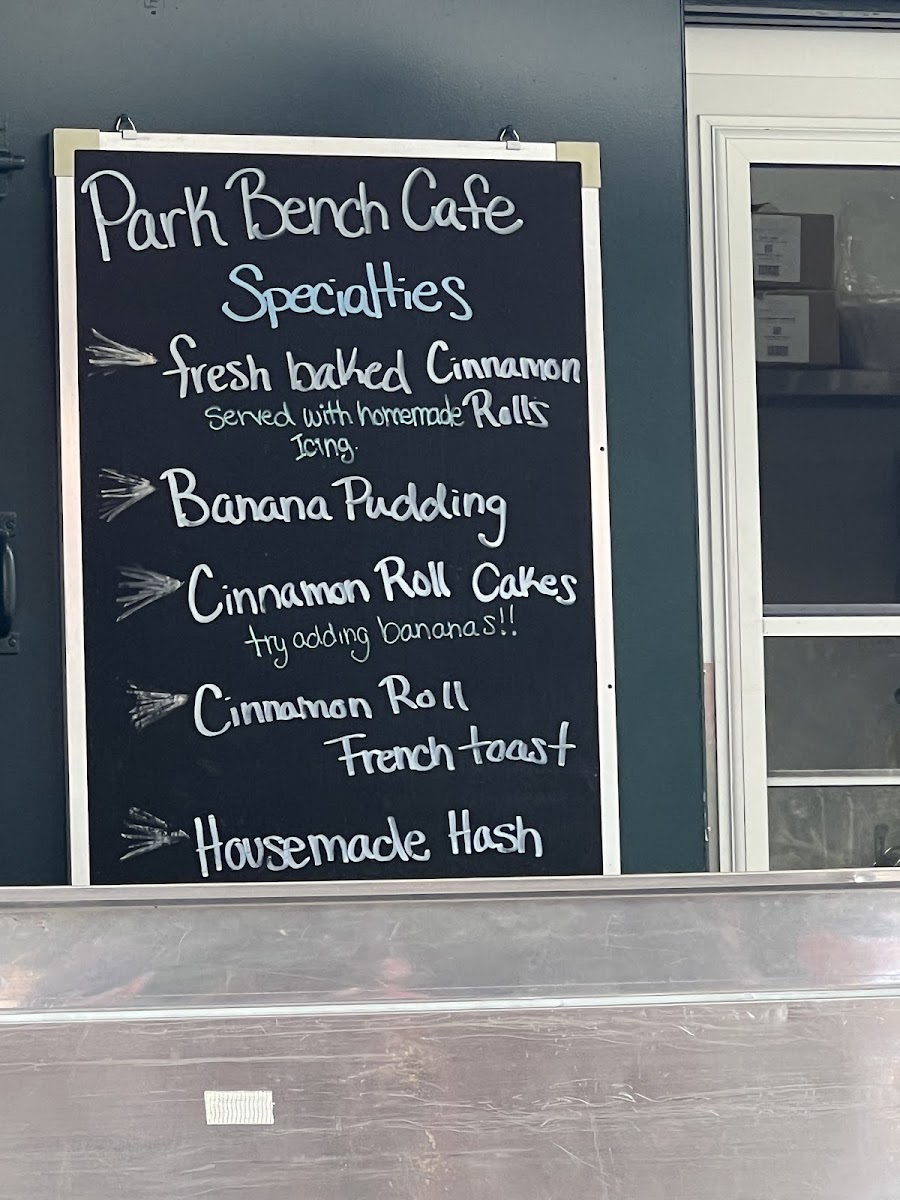 Park Bench Cafe
Specialties
fresh baked Cinnamon
Rolls
served with homemade
Icing.
Banana Pudding
Cinnamon Roll Cakes
try adding bananas!!
Cinnamon Roll
French toast
Housemade Hash